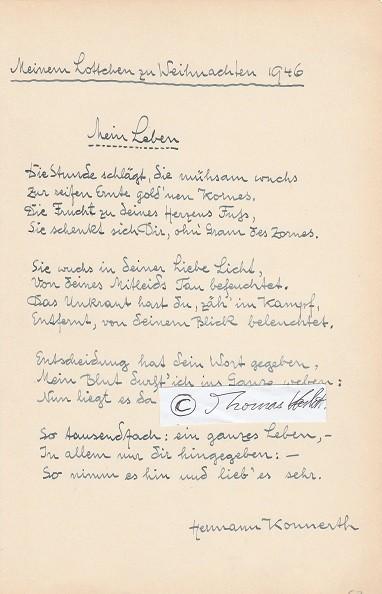 Meinem Lottchen zu Weihnachten 1946
Mein Leben
Die Stunde schlägt, die mühsam wuchs
Zur reifen Ernte gold'nen Kornes.
Die Frucht zu deines Herzens Fuss,
Sie schenkt sich Dir, ohn' Gram des Zornes.
Sie wuchs in deiner Liebe Licht,
Von deines Mitleids Tau befeuchtet.
Das Unkraut hast du, zäh' im Kampf,
Entfernt, von deinem Blick beleuchtet.
Entscheidung hat dein Wort gegeben,
Mein Blut durft' ich ins Ganze weben:
Nun liegt es da
© Thomas
So tausendfach: ein ganzes Leben,–
In allem nur dir hingegeben: –
So nimm es hin und lieb' es sehr.
Hermann Konnerth